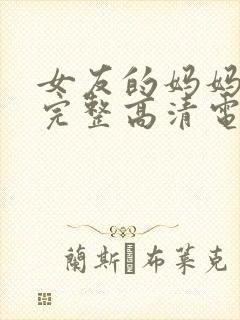 女友的妈妈
完整高清電
蘭斯·布莱克